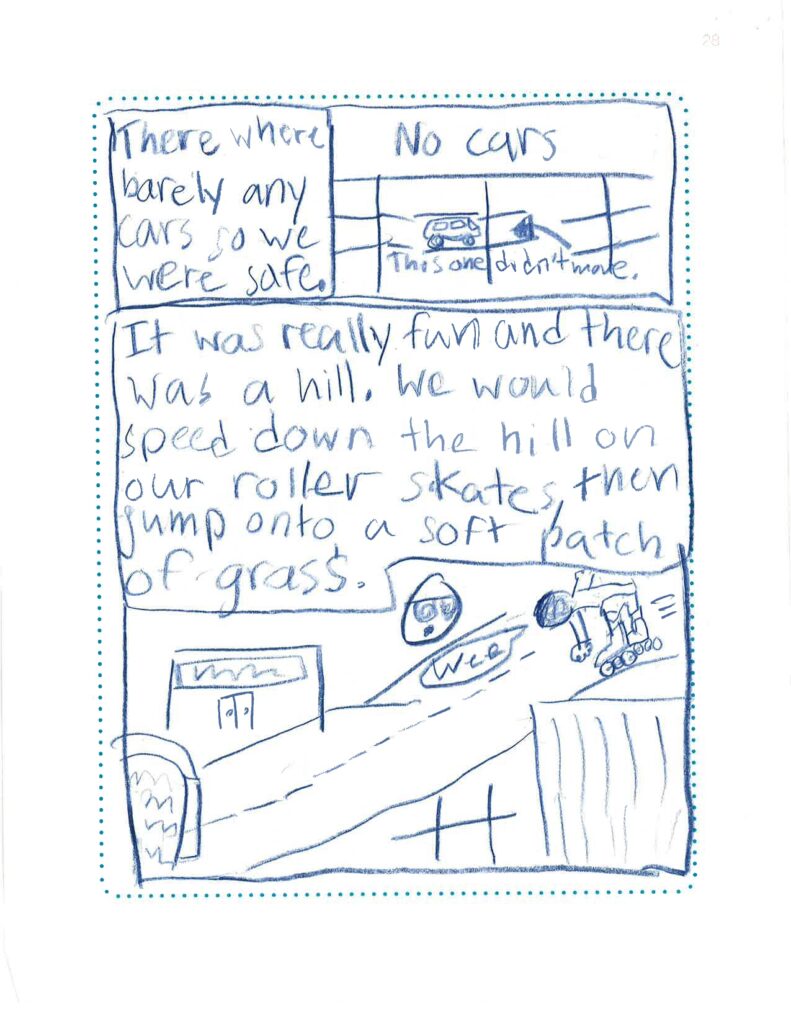 28
There where
barely any
cars so we
were safe.
No cars
This one didn't move.
It was really fun and there
was a hill. We would
speed down the hill on
our roller skates, then
jump onto a soft patch
of grass.
Wee